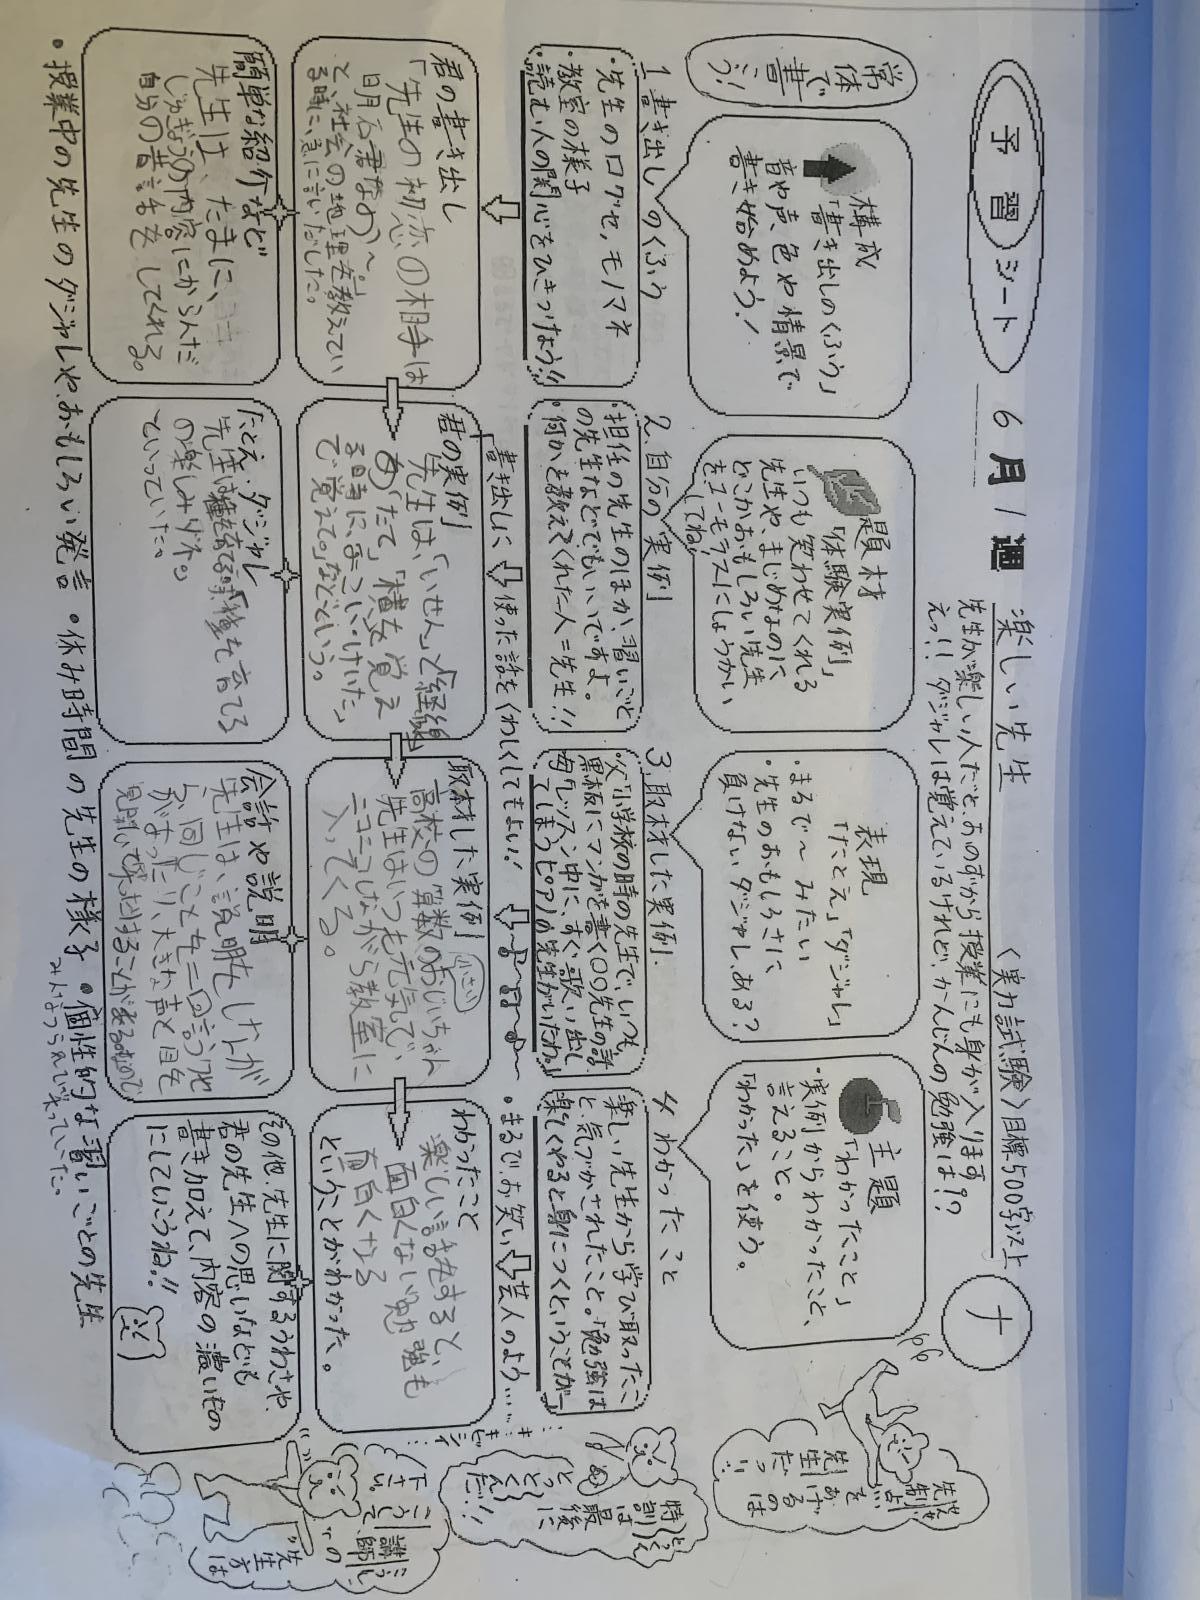 予習シート
6月1週
楽しい先生
〈実力試験〉目標500字以上
ナ
先生が楽しい人だと、おのずから授業にも身が入ります
えっ!! ダジャレは覚えているけれど、かんじんの勉強は??
常体で書こう!
構成
「書き出しのくふう」
音や声、色や情景で
書き始めよう!
題材
「体験実例」
いつも笑わせてくれる
先生や、まじめなのに
どこかおもしろい先生
をユーモラスにしょうかい
してね!
表現
「たとえ」「ダジャレ」
・まるで〜みたい
・先生のおもしろさに
負けないダジャレ、ある?
主題
「わかったこと」
・実例からわかったこと、
言えること。
「わかった」を使う。
1 書き出しのくふう
・先生の口グセ,モノマネ
・教室の様子
・読む人の関心をひきつけよう!!
2.自分の実例
・担任の先生のほか、習いごと
の先生などでもいいですよ。
・何かを教えてくれた人=先生!!
3.取材した実例.
・父「小学校の時の先生で、いつも
黒板にマンガを書く〇〇先生の話
・母「レッスン中に、すぐ歌い出し
てしまうピアノの先生がいたわ。」
4 わかったこと
楽しい先生から学び取ったこ
と、気づかされたこと。「勉強は
楽しくやると身につくということが―
書き出しに使った話をくわしくしてもよい!
・まるで、お笑い芸人のよう……
君の書き出し
「先生の初恋の相手は
明石君なの〜。」
と、社会の地理を教えてい
る時に、急に言いだした。
君の実例
先生は、「いせん」と「経線」
の「たて」「横」を覚え
る時に
で覚えて。」などという。
取材した実例
高校の算数のおじいちゃん
先生はいつも元気で、
ニコニコしながら教室に
入ってくる。
わかったこと
楽しい話をすると、
面白くない勉強も
面白くなる
ということがわかった。
簡単な紹介など
先生は、たまに、
じゅぎょうの内容にからんだ
自分の昔話をしてくれる。
たとえ・ダジャレ
の楽しみダネ。」
っていっていた。
会話や説明
先生は、説明をしながら
同じことを二回言う
大きな声と目を
その他、先生に関するうわさや、
君の先生への思いなども
書き加えて、内容の濃いもの
にしていこうね!!
・授業中の先生のダジャレや、おもしろい発言 ・休み時間の先生の様子 ・個性的な習いごとの先生
みんなつられて笑っていた。
特訓は
最後に
とっとくんだ!!